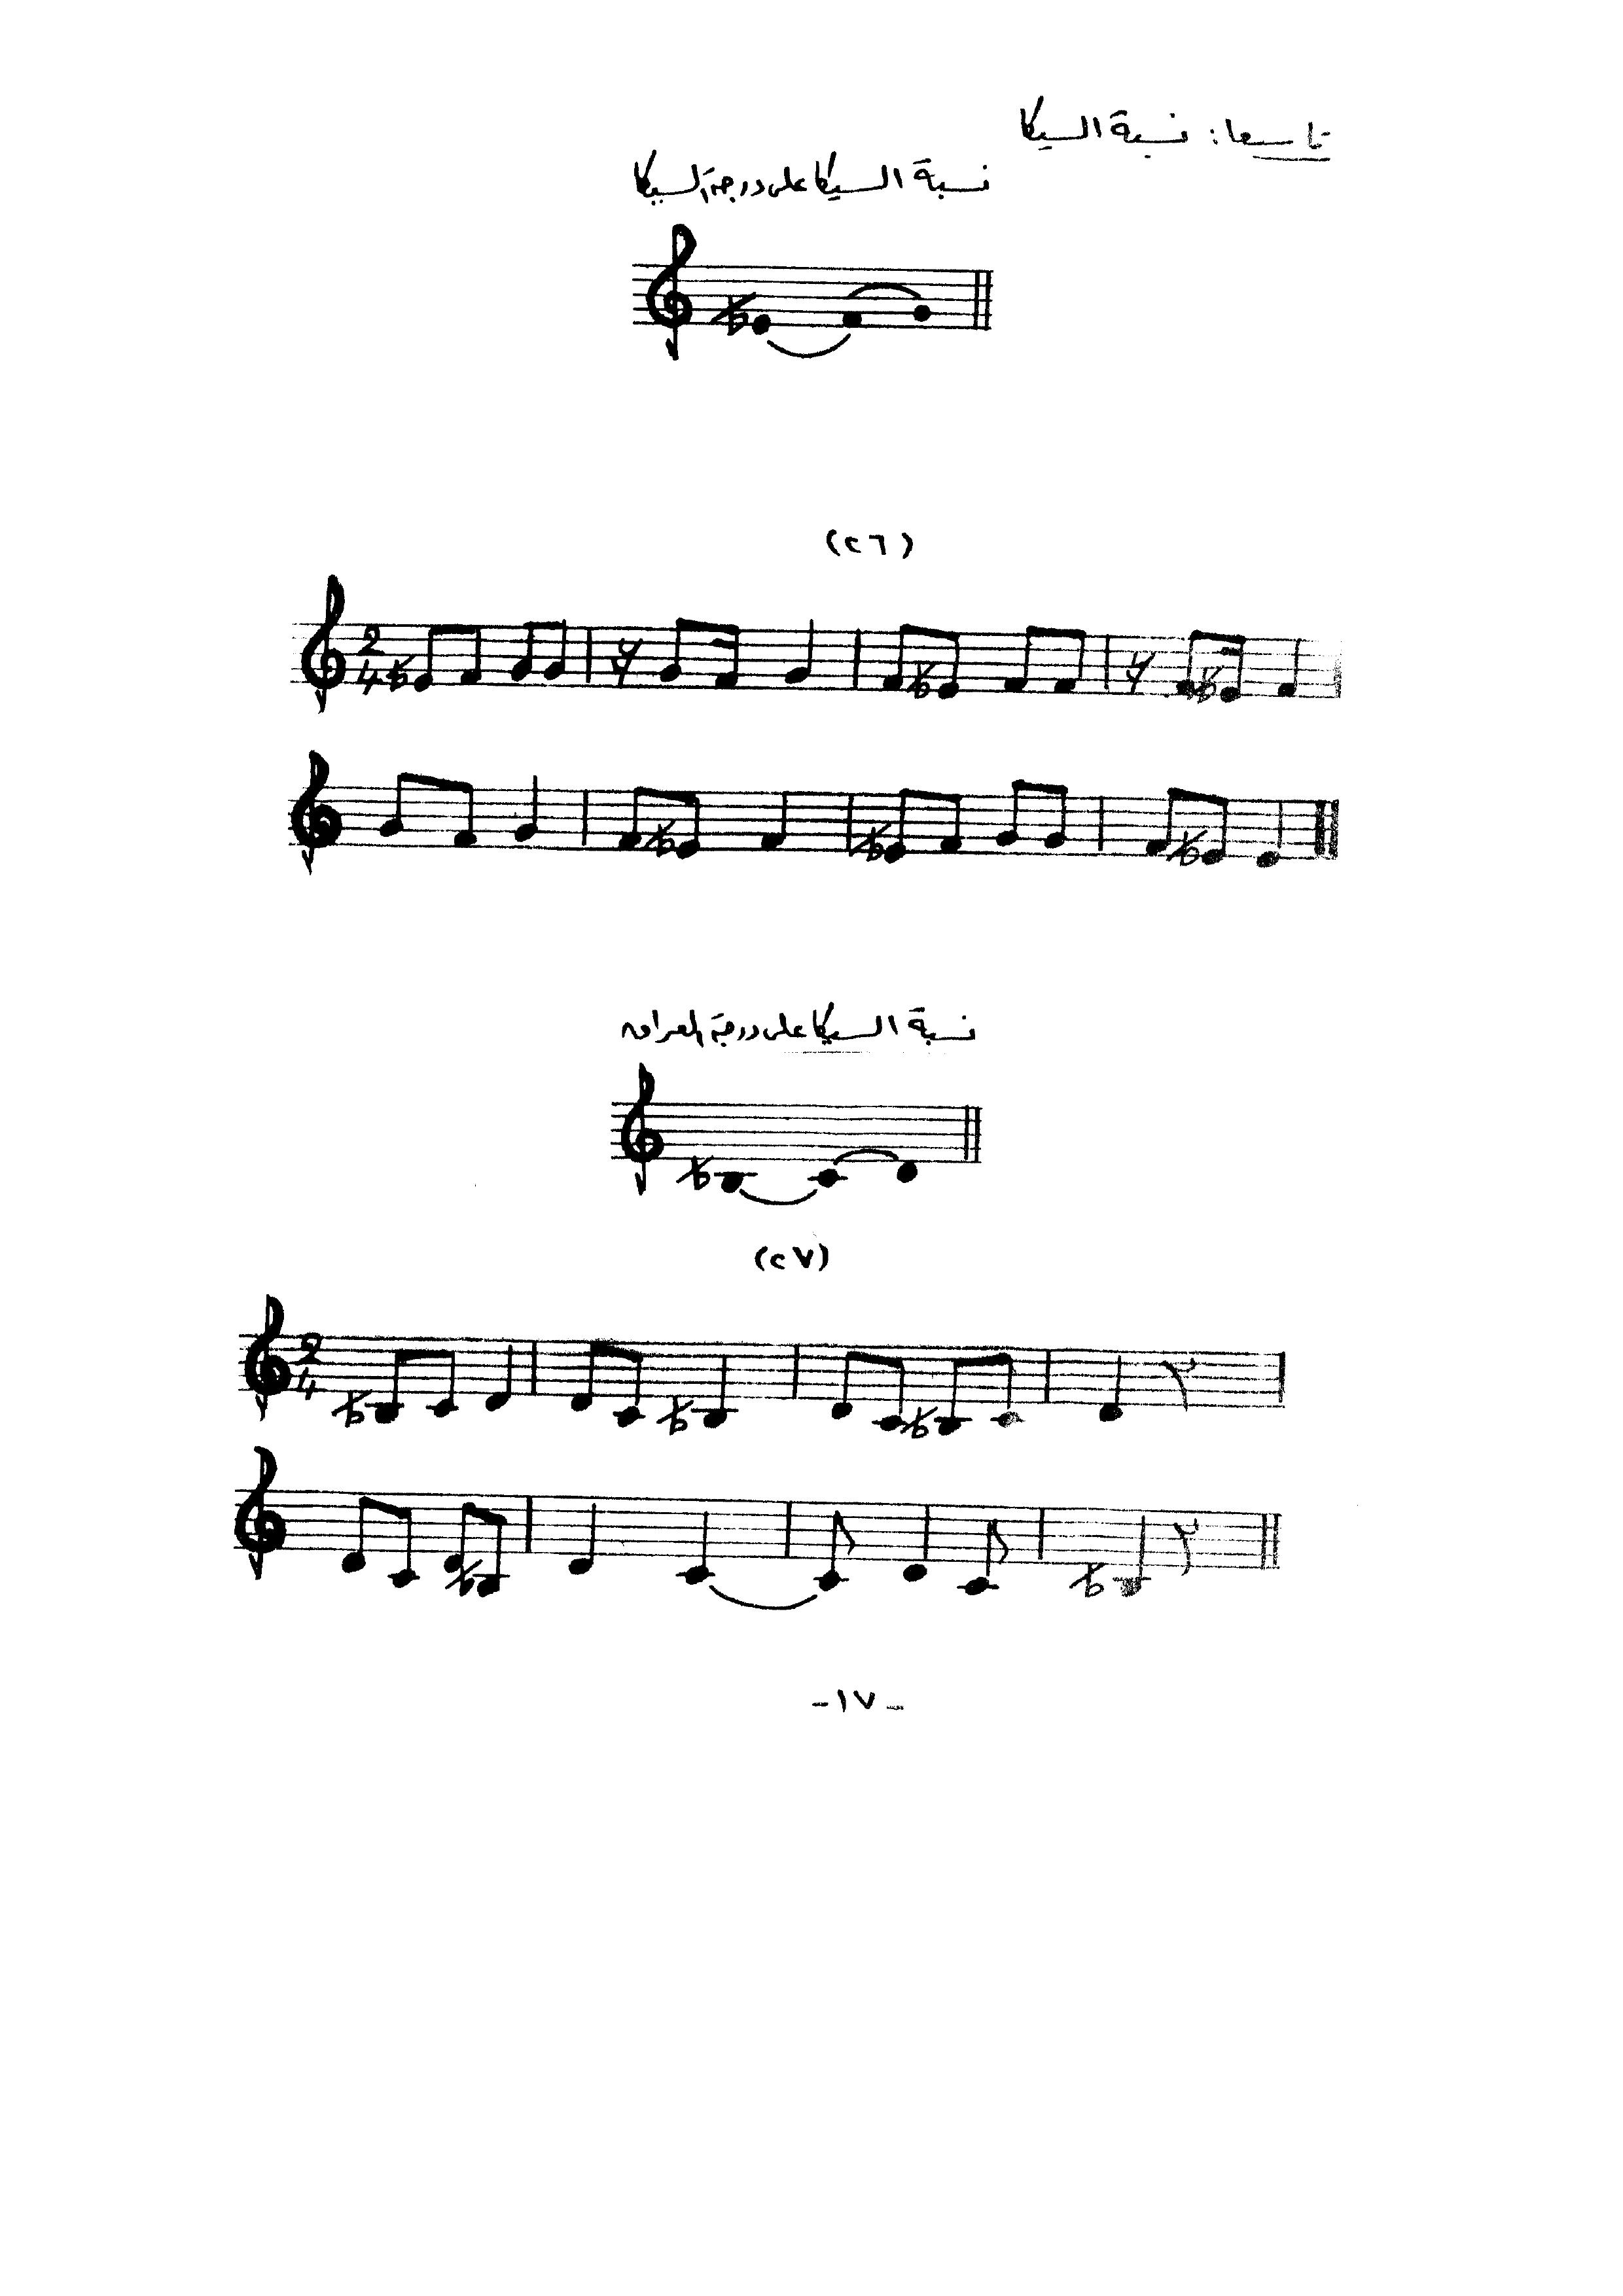 تاسعا: نسبة السيكا
نسبة السيكا على درجة السيكا
(٢٦)
2
4
نسبة السيكا على درجة العراق
(٢٧)
2
4
-١٧-